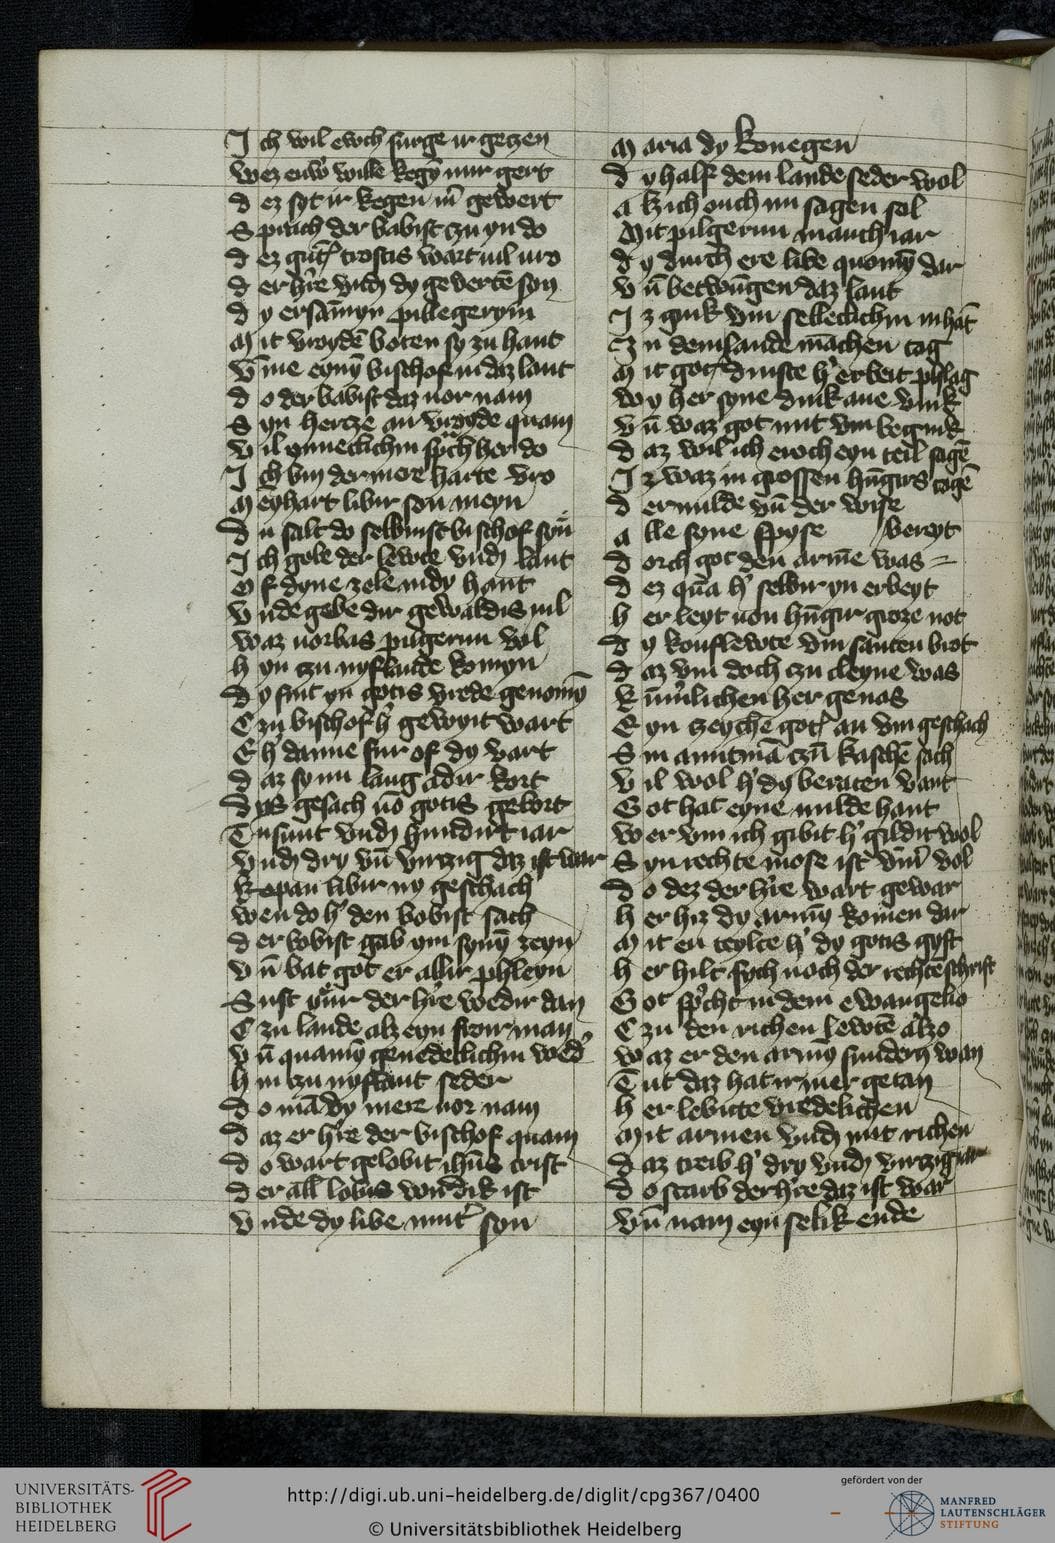 Ich wil ewch furge ir getzen
wez euwir wille kegen mir gert
dez syt ir kegen mir gewert
Sprach der babist czu yn do
dez guten trostis wart uil uro
der hre vnd dy geverte syn
dy ersamyn pillegerym
Mit vroyden boten sy zu hant
vme eynen bischof in daz lant
do der babist daz uor nam
Syn hertze an vroyde quam
vil ynneclichin sprach her do
Ich bin der mere harte vro
Meyhart libir son meyn
du salt do selbinst bischof syn
Ich gebe der lewte vnd lant
of dyne zele in dy hant
vnde gebe dir gewaldis uil
waz uorbas pilgerim wil
hyn czu nyflande komyn
dy sint yn gotis vrede genomen
Czu bischof her gewyit wart
E her danne fur of dy vart
daz sy nu lang adir kort
dys gesach uon gotis gebort
Tusunt vnd hundirt iar
vnd dry vn virtzig daz ist war
kopan libir ny geschach
wen do her den bobist sach
der bobist gab ym synen zeyn
vn bat got er allir phleyn
Sust wur der hre wedir dan
Czu lande alz eyn from man
vn quamen genedeclichin weder
hin czu nyflant seder
do man dy mere uor nam
daz er hre der bischof quam
do wart gelobit ihus crist
der all lobis wirdik ist
vnde dy libe mutir syn
Maria dy konegen
dy half dem lande seder wol
alz ich ouch nu sagen sol
Mit pilgerim manch iar
dy durch ere libe quomen dar
vn betwungen daz lant
Iz gink vm selleclichin in hant
zu dem lande manchen tag
Mit gotis dinste her erbeit phlag
wy her syne dink ane vink
vn waz got mit vm begink
daz wil ich ewch eyn teil sagen
Iz waz in grossen hungirs tagen
der milde vn der wise
alle syne spyse bereyt
dorch got den armen was
dez quam her selbir yn erbeyt
her leyt uon hungir groze not
dy konflewte vm santen brot
daz vm doch czu cleyne was
kummerlichen her genas
Eyn zeychen gotis an vm geschach
Sin amptman czun kaschen sach
vil wol her dy beraten vant
Got hat eyne milde hant
wer vm ich gibit her gildit wol
Syn rechte mose ist vmmer vol
do dez der hre wart gewar
her hiz dy armen komen dar
Mit en teylte her dy gotis gyft
her hilt sych noch der rechten schrift
Got spricht in dem ewangelio
Czu den richen lewten alzo
waz er den armen sunderg wan
Tut daz hat ir mer getan
her lebitte vredelichen
Mit armen vnd mit richen
daz treib her dry vnd virtzig iar
do starb der hre daz ist war
vn nam eyn selik ende
UNIVERSITÄTS-
BIBLIOTHEK
HEIDELBERG
http://digi.ub.uni-heidelberg.de/diglit/cpg367/0400
© Universitätsbibliothek Heidelberg
gefördert von der
MANFRED
LAUTENSCHLÄGER
STIFTUNG